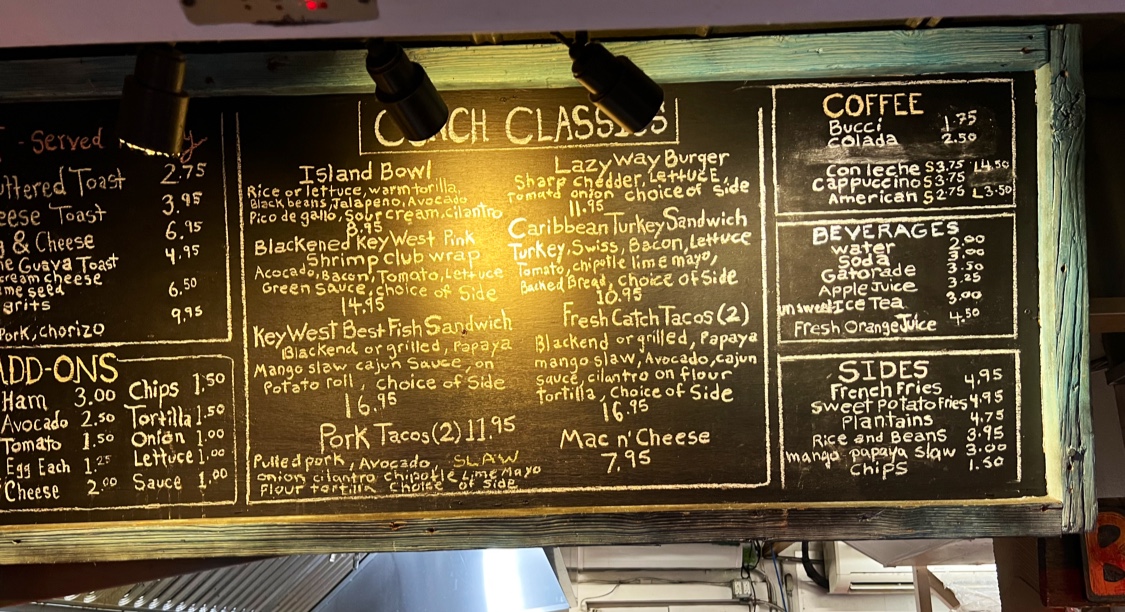 - Served
Toast 2.75
Toast 3.95
& Cheese 6.95
Guava Toast 4.95
cream cheese
seed 6.50
grits
9.95
Pork, chorizo
ADD-ONS
Ham 3.00
Avocado 2.50
Tomato 1.50
Egg Each 1.25
Cheese 2.00
Chips 1.50
Tortilla 1.50
Onion 1.00
Lettuce 1.00
Sauce 1.00
CLASSICS
Island Bowl
Rice or lettuce, warm torilla,
Black beans, Jalapeno, Avocado
Pico de gallo, Sour cream, cilantro
8.95
Blackened Key West Pink
Shrimp Club wrap
Acocado, Bacon, Tomato, Lettuce
Green Sauce, choice of Side
14.95
Key West Best Fish Sandwich
Blackend or grilled, Papaya
Mango slaw cajun Sauce, on
Potato roll, choice of Side
16.95
Pork Tacos (2) 11.95
Pulled pork, Avocado, SLAW
onion cilantro chipotle Lime Mayo
Flour tortilla Choice of Side
Lazy Way Burger
Sharp chedder, Lettuce,
Tomato onion choice of Side
11.95
Caribbean Turkey Sandwich
Turkey, Swiss, Bacon, Lettuce
Tomato, chipotle lime mayo,
Backed Bread, choice of Side
10.95
Fresh Catch Tacos (2)
Blackend or grilled, Papaya
mango slaw, Avocado, cajun
sauce, cilantro on flour
tortilla, Choice of Side
16.95
Mac n' Cheese
7.95
COFFEE
Bucci 1.75
Colada 2.50
Con leche S3.75 L4.50
Cappuccino S3.75
American S2.75 L3.50
BEVERAGES
water 2.00
Soda 3.00
Gatorade 3.50
Apple Juice 3.25
unsweet Ice Tea 3.00
Fresh Orange Juice 4.50
SIDES
French Fries 4.95
Sweet Potato Fries 4.95
Plantains 4.75
Rice and Beans 3.95
mango papaya slaw 3.00
Chips 1.50